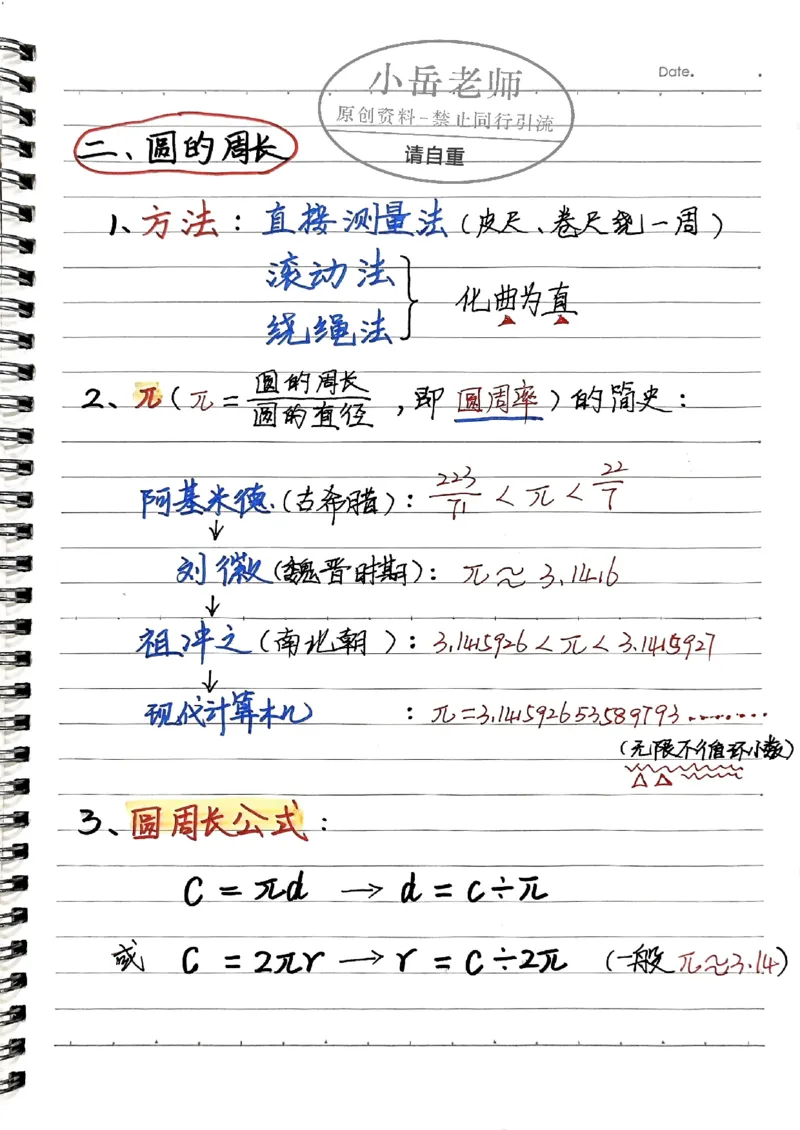 Date.
小岳老师
原创资料-禁止同行引流
请自重
二、圆的周长
1、方法：直接测量法（皮尺、卷尺绕一周）
滚动法
绕绳法
化曲为直
2、π（π=圆的周长/圆的直径，即圆周率）的简史：
阿基米德.（古希腊）：223/71<π<22/7
↓
刘徽（魏晋时期）：π≈3.1416
↓
祖冲之（南北朝）：3.1415926<π<3.1415927
↓
现代计算机：π=3.141592653589793········
（无限不循环小数）
3、圆周长公式：
C=πd→d=C÷π
或 C=2πr→r=C÷2π（一般π≈3.14）